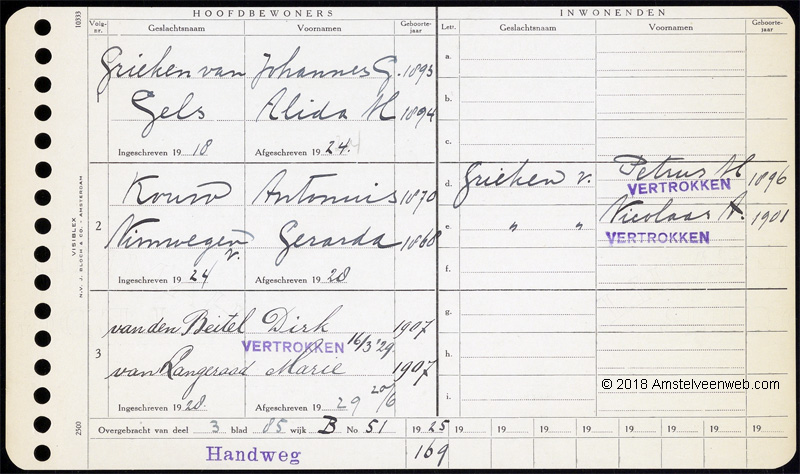 10333
HOOFDBEWONERS
INWONENDEN
Volg-nr.
Geslachtsnaam
Voornamen
Geboorte-jaar
Lett.
Geslachtsnaam
Voornamen
Geboorte-jaar
1
Grieken van Johannes G. 1895
Gels Alida M 1894
Ingeschreven 19 18 Afgeschreven 19 24.
a.
b.
c.
2
Kouw Antonius 1870
Nimwegen v. Gerarda 1868
Ingeschreven 19 24 Afgeschreven 19 28
d. Grieken v. Petrus M 1896
VERTROKKEN
e. " " Nicolaas A. 1901
VERTROKKEN
f.
3
van den Beitel Dirk 1907
VERTROKKEN 16/3 '29.
van Langeraad Marie 1907
Ingeschreven 19 28. Afgeschreven 19 29 20/6
g.
h.
i.
VISIBLEX
N.V. J. BLOCH & CO. - AMSTERDAM
2500
Overgebracht van deel 3 blad 85 wijk B No 51 19 25 19 19 19 19 19 19 19 19
Handweg 169
© 2018 Amstelveenweb.com